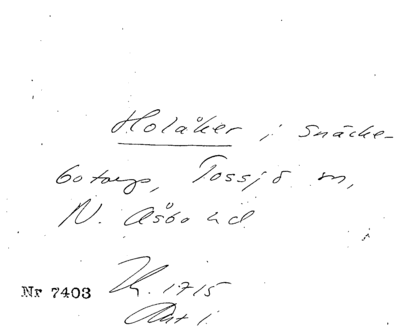 Holåker i Snäcke-
botorp, Tossjö sn,
N. Åsbo hd
Nr 7403 Kr. 1715
Akt 1.